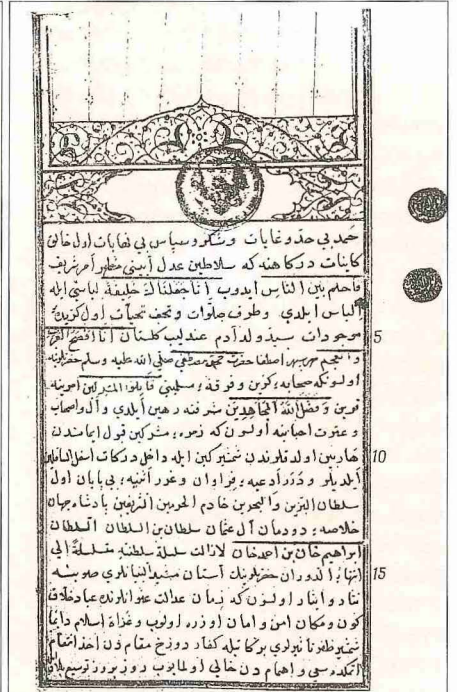 حمد بی حد و غایات و شکر و سپاس بی نهایات اول خالق
کاینات درکاهنه که سلاطین عدل آیینی مظهر امر شریف
فاحکم بین الناس ایدوب انا جعلناك خلیفة لباسی ایله
الباس ایلدی و طوف صلوات و تحف تحیات اول کزیده
موجودات سید ولد آدم عندلیب کلستان انا افصح العرب 5
والعجم اصطفا حضرت محمد مصطفی صلی الله علیه وسلم حضرتلرینه
اولسونکه صحابه کزین و فرقه مسلمینی قاتلوا المشرکین امرینه
قرین و فضل الله المجاهدین شرفنه رهین ایلدی و آل و اصحاب
و عترت احبابنه اولسون که زمره مشرکین قبول ایماندن
هاربین اولدقلرندن شمشیر کین ایله داخل درکات اسفل السافلین 10
ایلدیلر و درر ادعیه فراوان و غرر اثنیه بی پایان اول
سلطان البرین والبحرین خادم الحرمین الشریفین پادشاه جهان
خلاصه دودمان آل عثمان سلطان بن السلطان السلطان
ابراهیم خان بن احمد خان لازالت سلسلة سلطنته متسلسلة الی
انتهاء الدوران حضرتلرینك آستان مشید البنیانلری صوبنه 15
نثار و ایثار اولسون که زمان عدالت عنوانلرنده عباد خلاق
کون و مکان امن و امان اوزره اولوب و غزاة اسلام دایما
شمشیر ظفر تأثیرلری برکاتیله کفار دوزخ مقام دن اخذ انتقام
اتمکده سعی و اهتمام دن خالی اولمایوب روز بروز توسیع بلاد